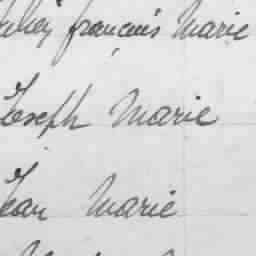 françois Marie
Joseph Marie
Jean Marie